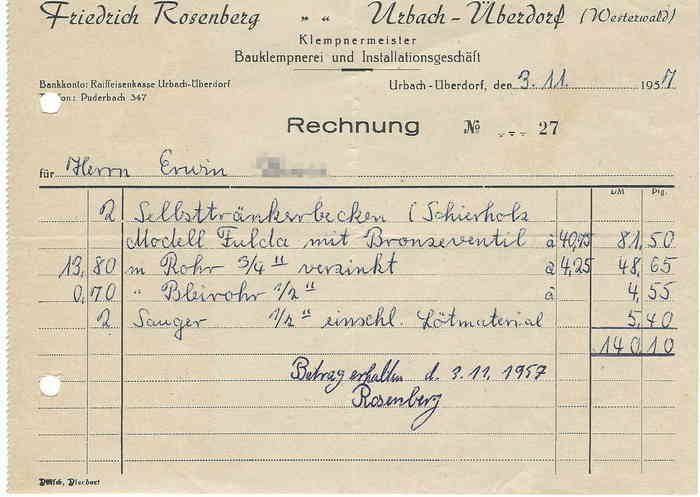 Friedrich Rosenberg „ “ Urbach-Überdorf (Westerwald)
Klempnermeister
Bauklempnerei und Installationsgeschäft
Bankkonto: Raiffeisenkasse Urbach-Überdorf
Urbach-Überdorf, den 3. 11. 1957
Puderbach 347
Rechnung № 27
für Herrn Erwin
DM Pfg.
2 Selbsttränkerbecken (Schierholz
Modell Fulda mit Bronzeventil à 40,75 81,50
13,80 m Rohr 3/4 " verzinkt à 4,25 48,65
0,70 " Bleirohr 1/2 " à 4,55
2 Sauger 1/2 " einschl. Lötmaterial 5,40
140,10
Betrag erhalten d. 3.11.1957
Rosenberg